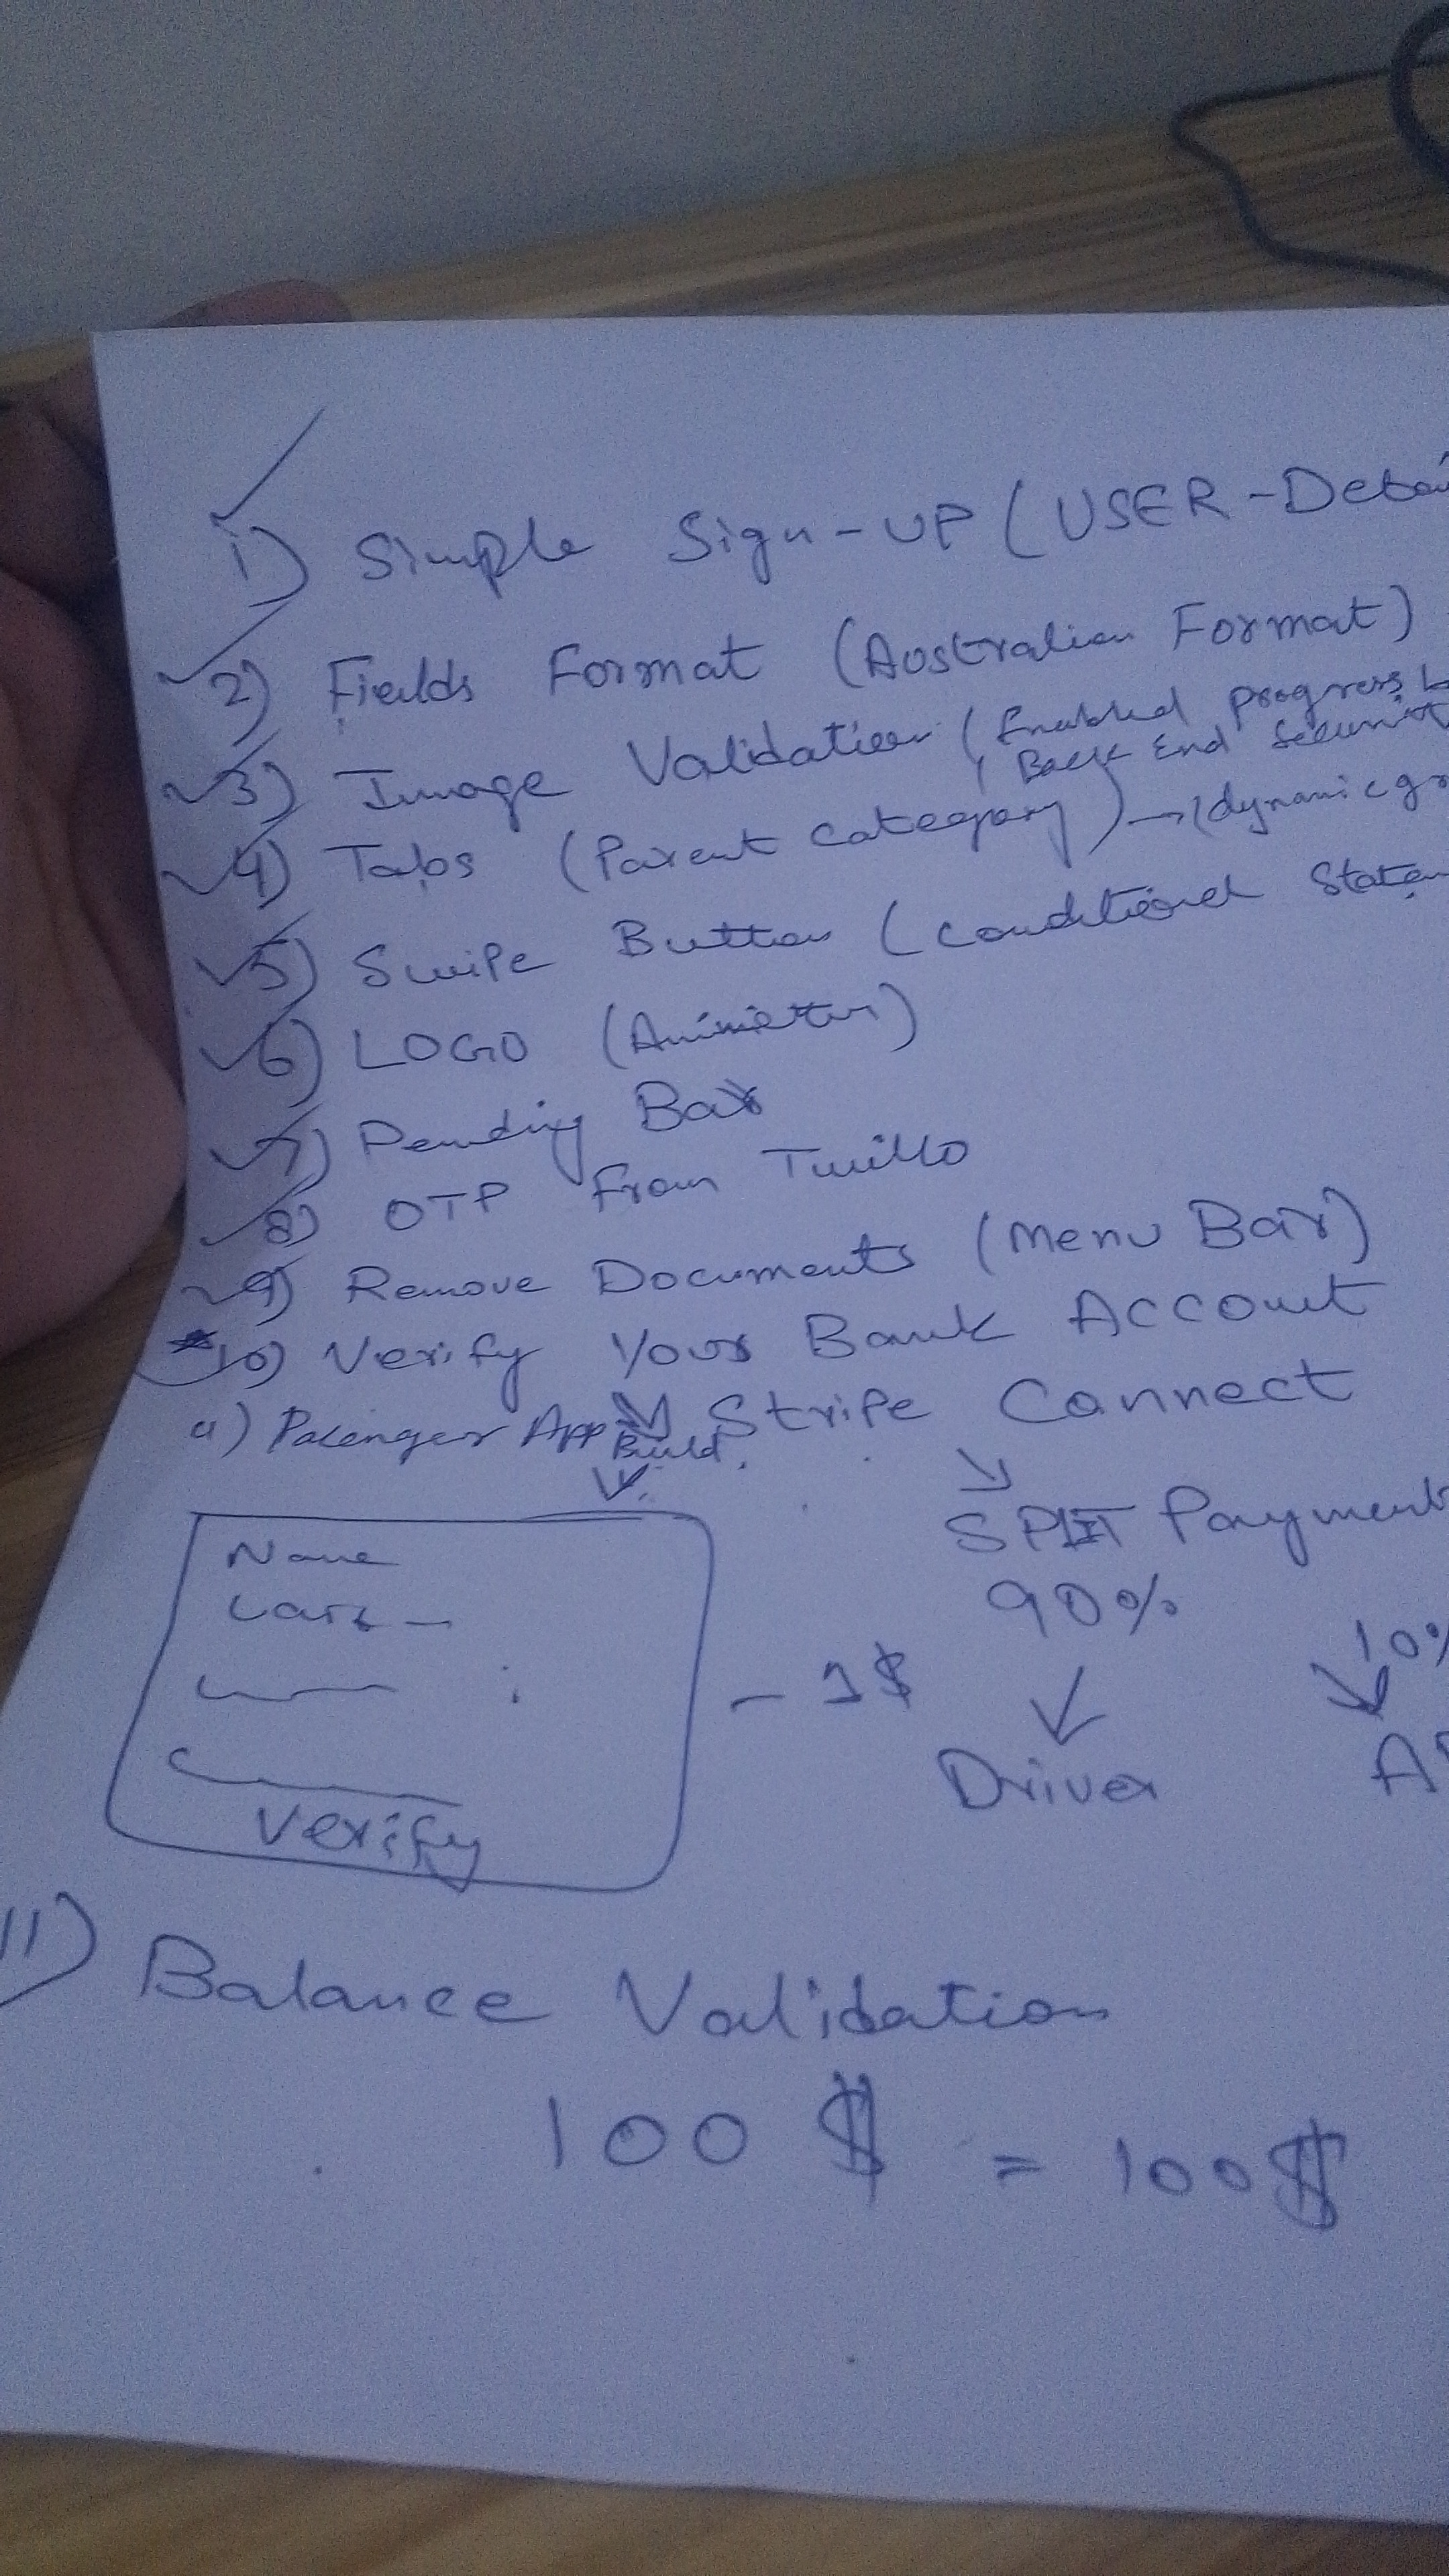 1) Simple Sign-UP (USER-Detai
2) Fields Format (Australian Format)
3) Image Validation (Enabled Progress b
Back End Securit
4) Tabs (Parent category) → (dynamic gr
5) Swipe Button (Conditional Statem
6) LOGO (Animation)
7) Pending Bar
8) OTP From Twillo
9) Remove Documents (Menu Bar)
*10) Verify Your Bank Account
a) Passenger App Build.
Stripe Connect
SPLIT Payment
90% 10%
Driver A
Name
- 1$
Verify
11) Balance Validation
100 $ = 100 $